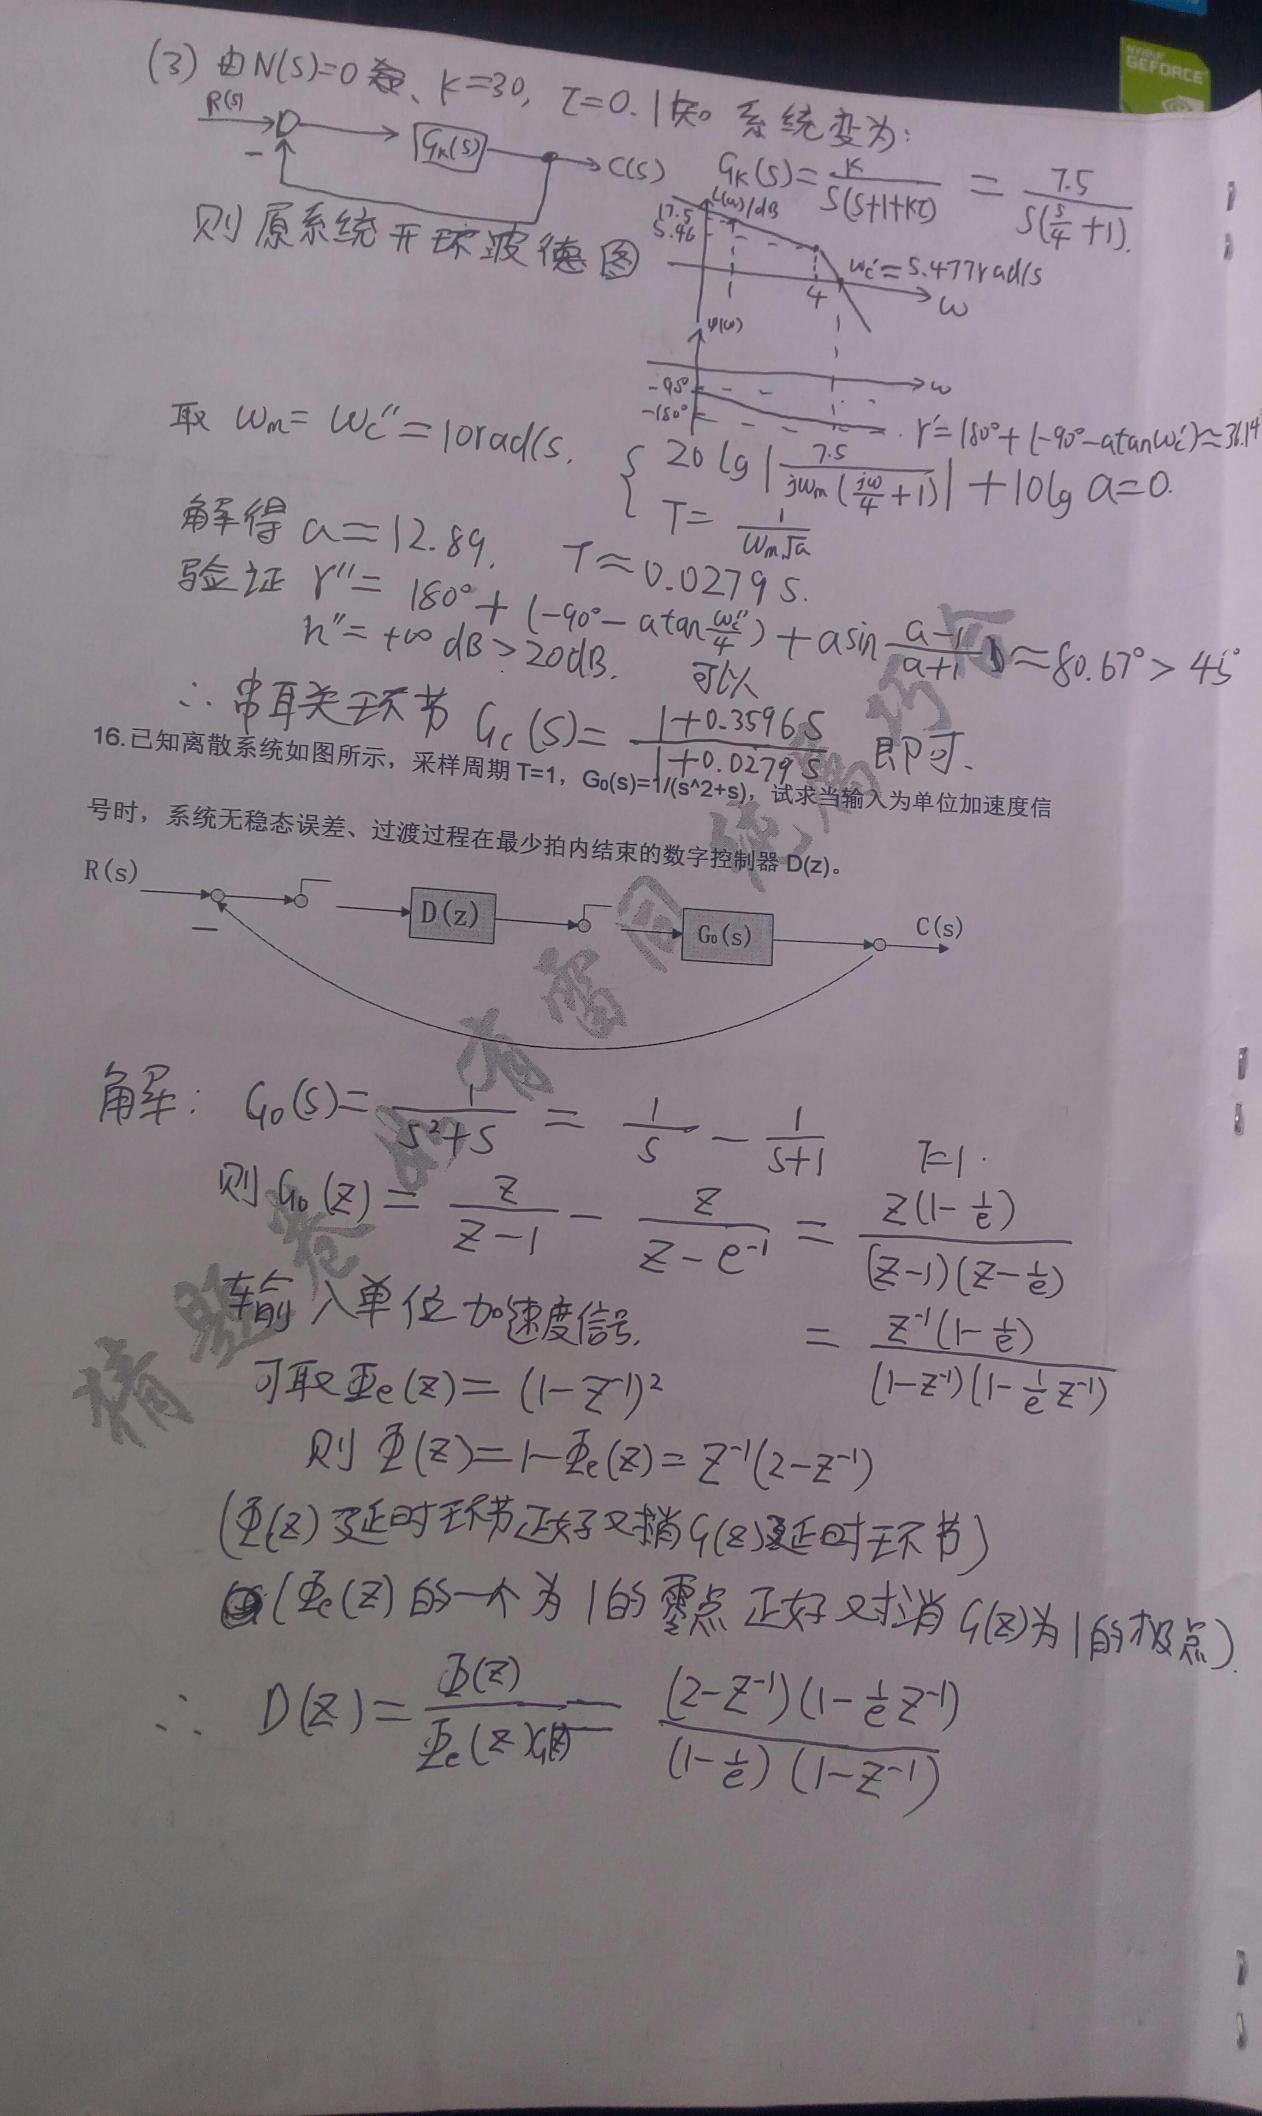 NVIDIA
GEFORCE
(3) 由N(s)=0、K=30, τ=0.1知 系统变为:
R(s) − GK(s) C(s)
GK(s)=K/(s(s+1+Kτ)) = 7.5/(s(s/4+1)).
则原系统开环波德图
L(ω)/dB
17.5
5.46
1 4 ωc'=5.477rad/s
ω
φ(ω)
ω
-90°
-180°
γ'=180°+(-90°-atanωc')≈36.14°
取 ωm=ωc''=10rad/s.
{ 20lg|7.5/(jωm(jω/4+1))|+10lg a=0.
T=1/(ωm√a)
解得 a=12.89. T≈0.0279s.
验证 γ''=180°+(-90°-atan ωc''/4)+asin (a-1)/(a+1)≈80.67°>45°
h''=+∞dB>20dB. 可以
∴串联环节 Gc(s)=(1+0.3596s)/(1+0.0279s) 即可.
16.已知离散系统如图所示，采样周期T=1，G₀(s)=1/(s^2+s)，试求当输入为单位加速度信
号时，系统无稳态误差、过渡过程在最少拍内结束的数字控制器D(z)。
R(s) − D(z) G₀(s) C(s)
解: G₀(s)=1/(s²+s)=1/s-1/(s+1) T=1.
则G₀(z)=z/(z-1)-z/(z-e⁻¹)=z(1-1/e)/((z-1)(z-1/e))
输入单位加速度信号. =z⁻¹(1-1/e)/((1-z⁻¹)(1-1/e z⁻¹))
可取Φe(z)=(1-z⁻¹)²
则Φ(z)=1-Φe(z)=z⁻¹(2-z⁻¹)
(Φ(z)延时环节正好对消G(z)延时环节)
(Φe(z)的一个为1的零点正好对消G(z)为1的极点).
∴ D(z)=Φ(z)/(Φe(z)G(z))=(2-z⁻¹)(1-1/e z⁻¹)/((1-1/e)(1-z⁻¹))
精题卷如有雷同纯属巧合